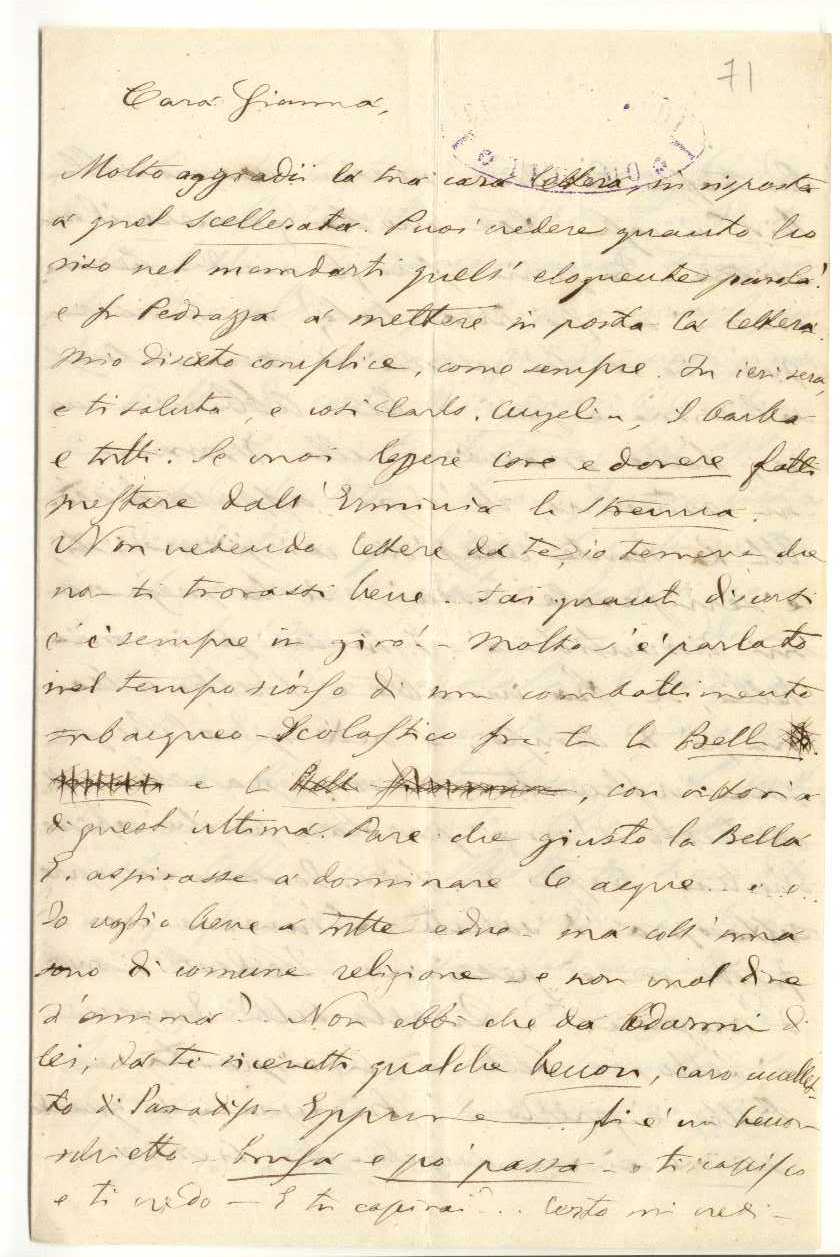 71
Cara Gianna,
Molto aggradii la tua cara lettera, in risposta
a quel scellerata. Puoi credere quanto ho
riso nel mandarti quell' eloquente parola!
e fu Pedrazza a mettere in posta la lettera.
mio discreto complice, come sempre. Fu ieri sera,
e ti saluta, e così Carlo, Angelin, Barba
e tutti. Se vuoi leggere core e dovere fatti
prestare dall' Erminia la strenna.
Non vedendo lettere da te, io temeva che
non ti trovassi bene. Sai quanti discorsi
c'è sempre in giro! - Molto s'è parlato
nel tempo scorso di un combattimento
subacqueo-scolastico fra la Bella
e la , con vittoria
di quest'ultima. Pare che giusto la Bella
E. aspirasse a dominare le acque.....
Io voglio bene a tutte e due - ma coll' una
sono di comune religione - e non vuol dire
d'anima? Non ebbi che da lodarmi di
lei; da te ricevetti qualche , caro uccellet-
to di Paradiso - Eppure ti è un
schietto - brusa e po' passa - ti capisco
e ti credo - E tu capirai? .. Certo mi credi -